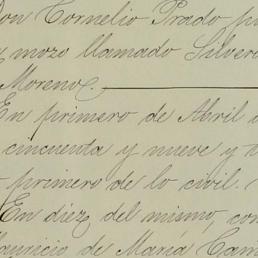 Don Cornelio Prado p
y mozo llamado Silver
Moreno.
En primero de Abril
cincuenta y nueve y t
primero de lo civil.
En diez del mismo, con
Mauricio de María Cam